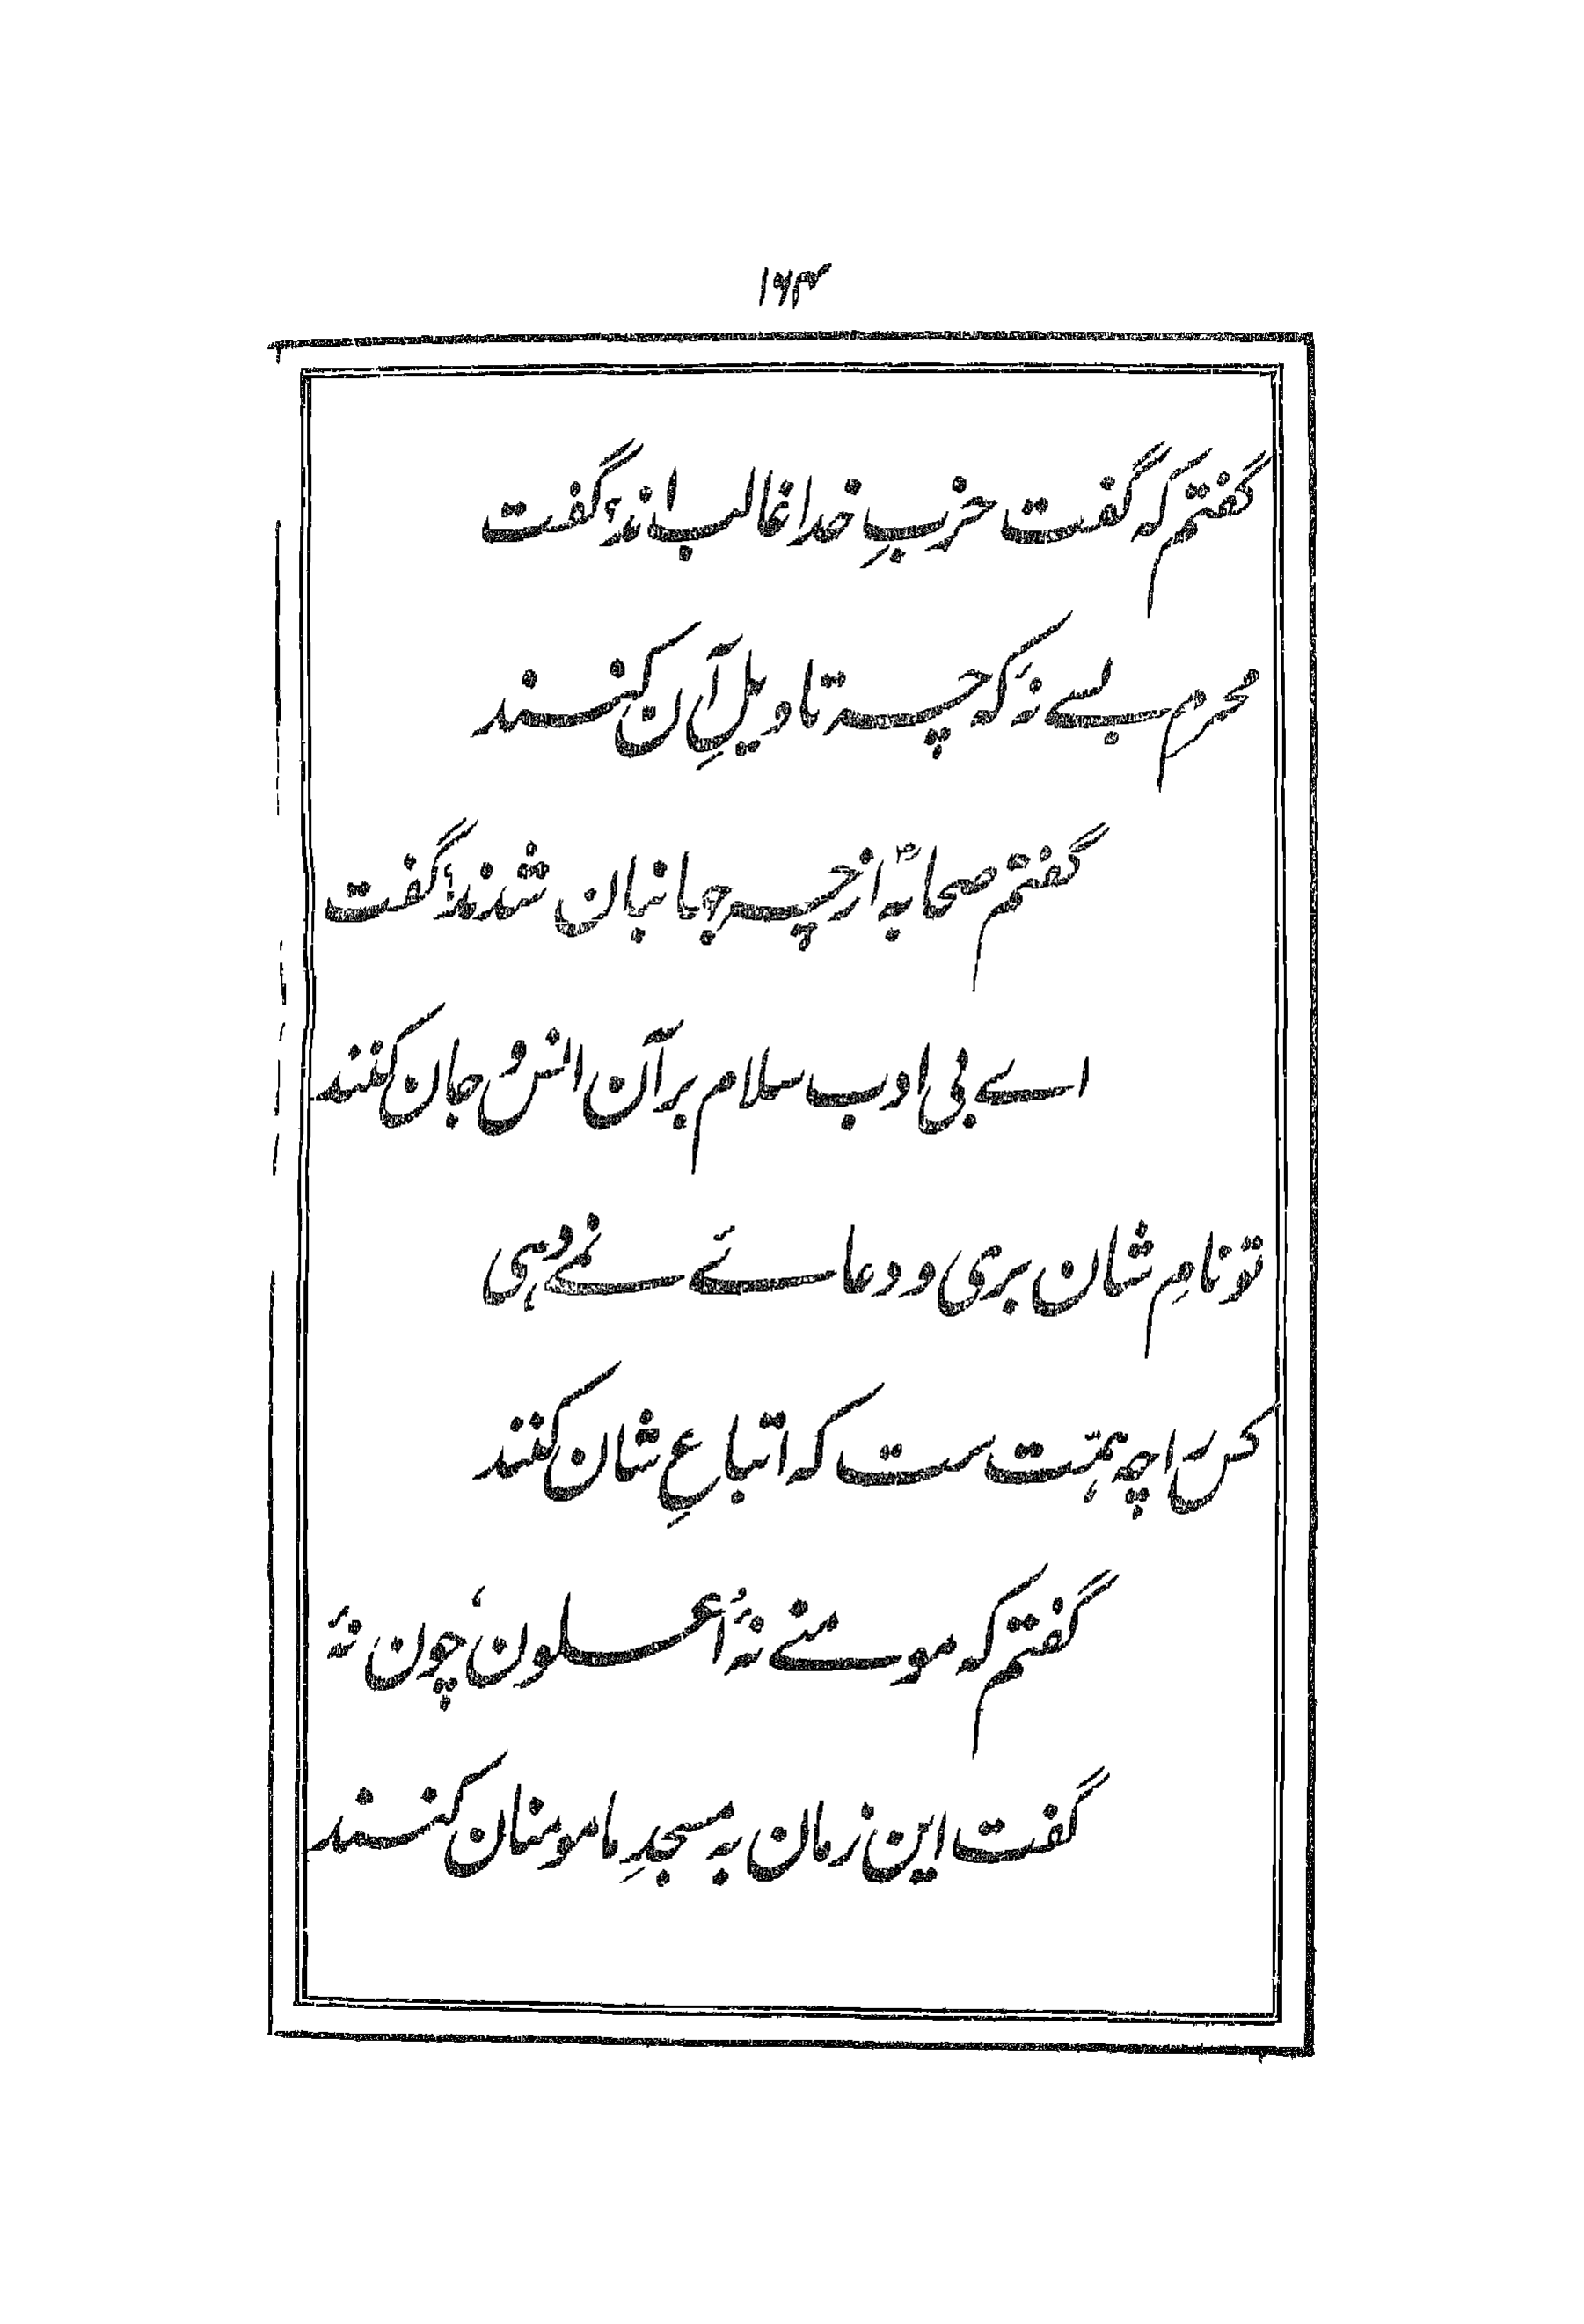 ۱۶۴
گفتم کہ گفت حزبِ خدا غالب اند؟ گفت
محرم بسے نۂ کہ چہ تاویلِ آن کنند
گفتم صحابہؓ از چہ جہانبان شدند؟ گفت
اے بی ادب سلام بر آن انس و جان کنند
تو نامِ شان بری و دعائے نمے دہی
کس را چہ ہمّت ست کہ اتباعِ شان کنند
گفتم کہ مومنے نۂ اُعلون، چون نۂ
گفت این زمان بہ مسجدِ ما مومنان کنند